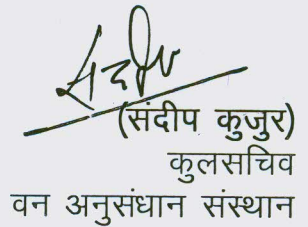 संदीप
(संदीप कुजुर)
कुलसचिव
वन अनुसंधान संस्थान